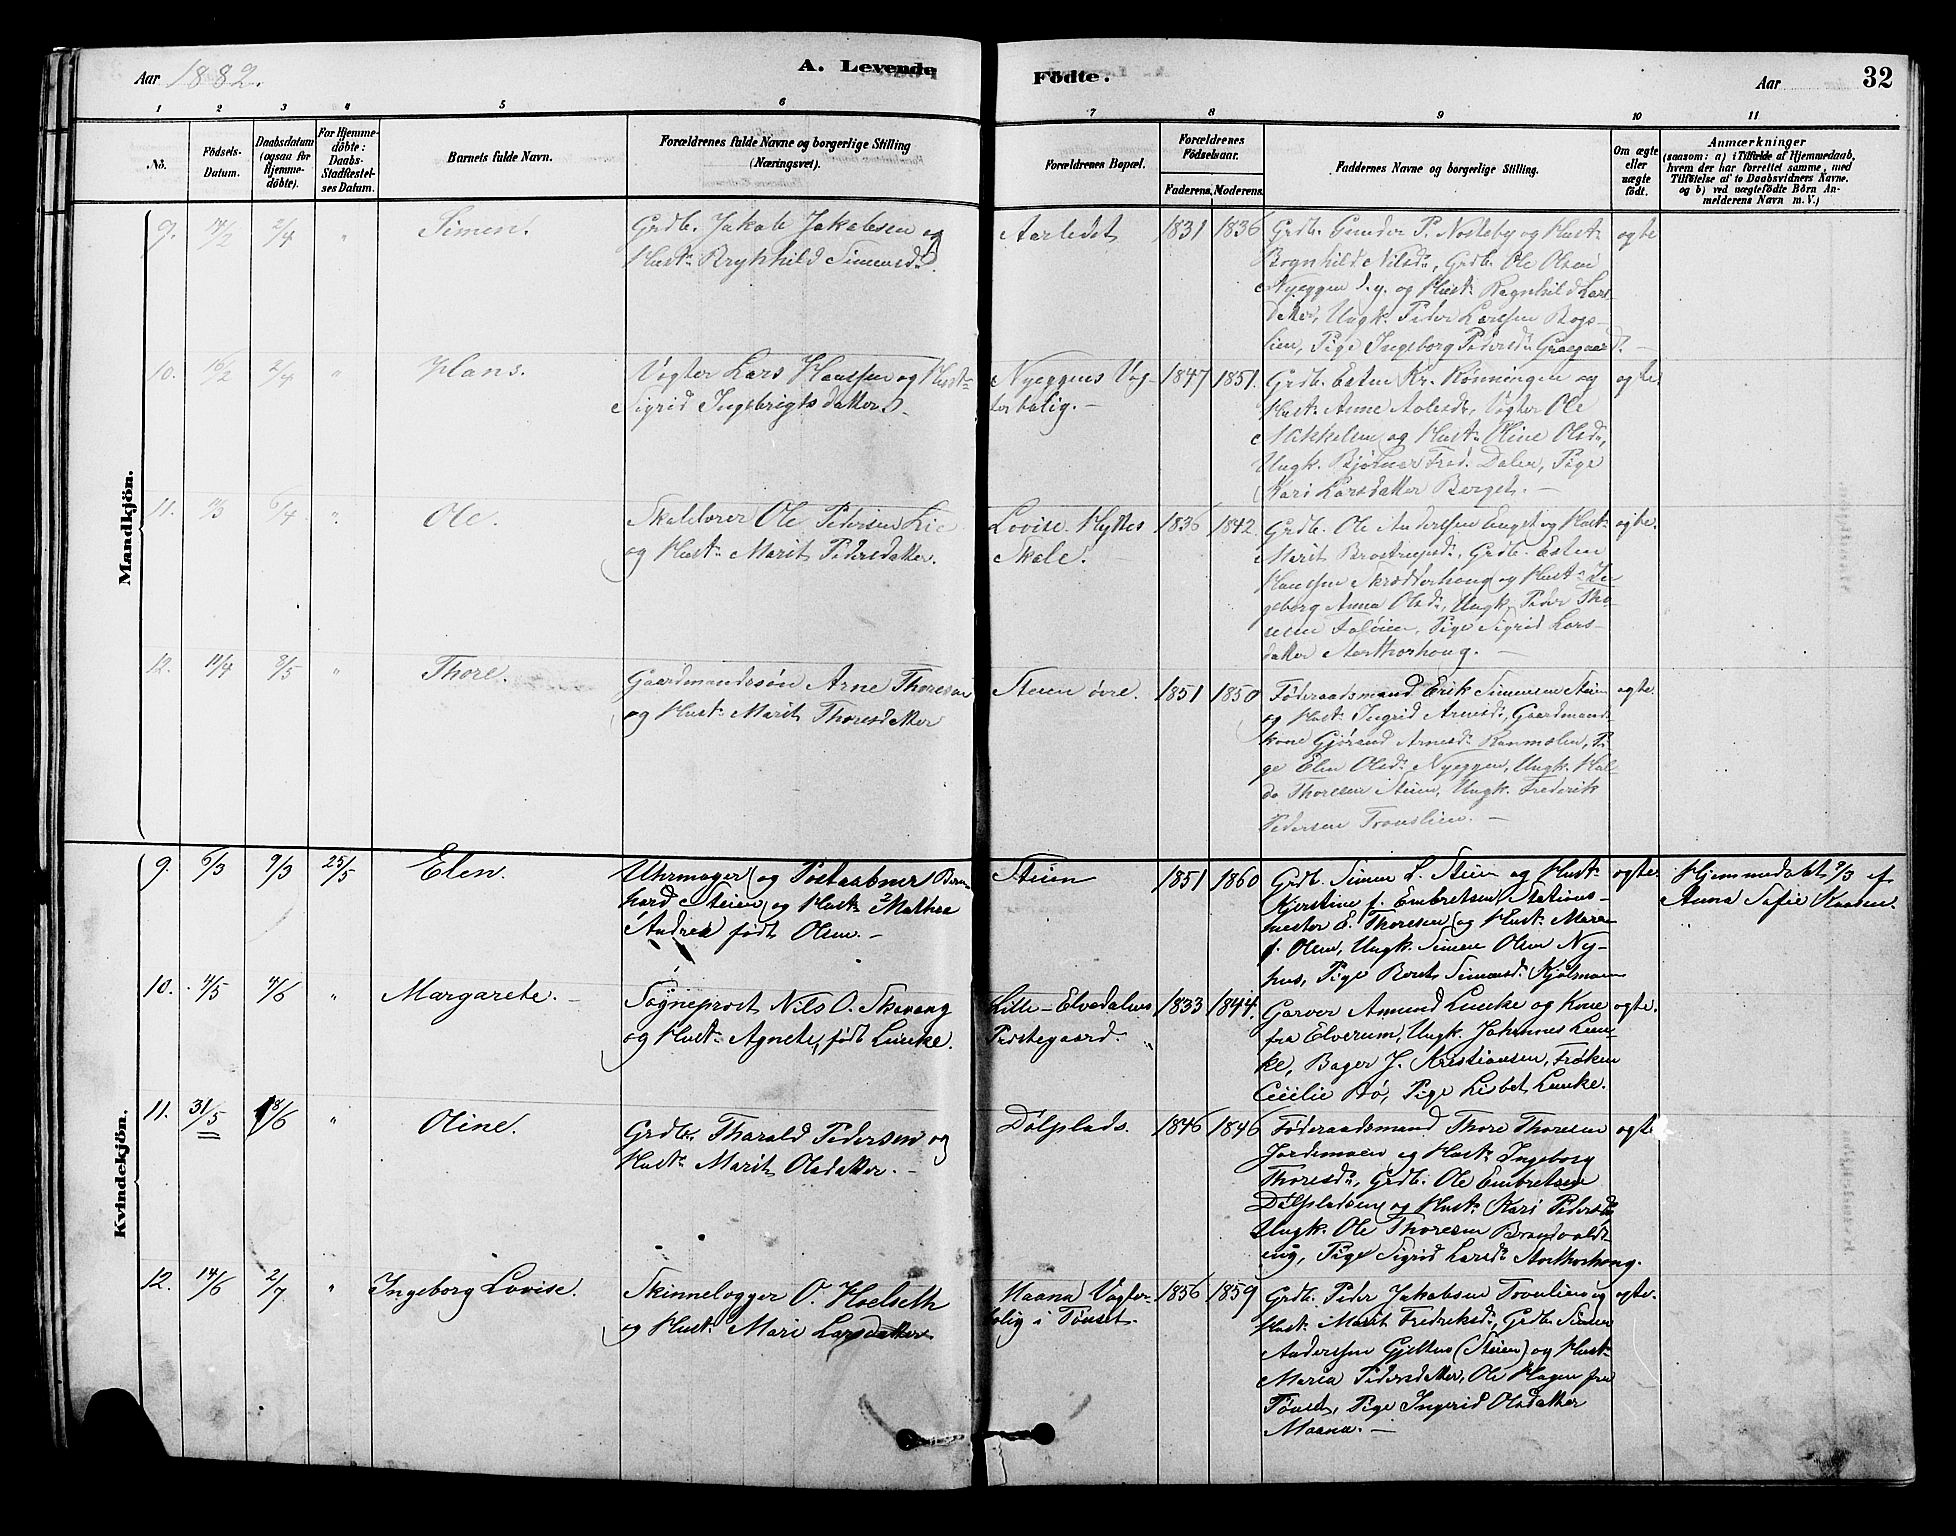 Aar 1882.
A. Levende Födte.
Aar
32
1 2 3 4 5 6 7 8 9 10 11
No.
Födsels-Datum.
Daabsdatum (ogsaa for Hjemmedöbte).
For Hjemmedöbte: Daabs-Stadfæstelses Datum.
Barnets fulde Navn.
Forældrenes fulde Navne og borgerlige Stilling (Næringsvei).
Forældrenes Bopæl.
Forældrenes Födselsaar.
Faderens. Moderens.
Faddernes Navne og borgerlige Stilling.
Om ægte eller uægte födt.
Anmærkninger
(saasom: a) i Tilfælde af Hjemmedaab, hvem der har forrettet samme, med Tilföielse af to Daabsvidners Navne. og b) ved uægtefödte Börn Anmelderens Navn m. V.)
Mandkjön.
9. 14/2 2/4 " Simen.
Grdb. Jakob Jakobsen og
Hust. Brynhild Simensd.
Aarledet 1831 1836
Grdb. Gunder P. Nosteby og Hust.
Nilsd., Grdb. Ole Olsen
Nyeggen d. y. og Hust. Ragnhild Lars-
datter, Ungk. Peder Larssen
Pige Ingeborg Pedersd.
ægte
10. 16/2 2/4 " Hans.
Vogter Lars Hanssen og Hust.
Sigrid Ingebrigtsdatter.
Nyeggens Vog-
terbolig. –
1847 1851.
Grdb. Esten Kr. Rønningen og
Hust. Anne Aolesd., Vogter Ole
Mikkelsen og Hust. Oline Olsd.,
Ungk. Bjørner Fred. Dalen, Pige
Kari Larsdatter Berget. –
ægte.
11. 6/4 " Ole.
Skolelærer Ole Pedersen Lie
og Hust. Marit Pedersdatter.
Lovise Hyttes
Skole.
1836 1842.
Grdb. Ole Anderssen Enget og Hust.
Marit Brostrupsd., Grdb. Esten
Hanssen Skrædderhaug og Hust. In-
geborg Anna Olsd., Ungk. Peder Tho-
resen Pige Sigrid Lars-
datter Aasthorhaug. –
ægte.
12. 11/4 8/5 " Thore.
Gaardmandssøn Arne Thoresen
og Hust. Marit Thoresdatter
Steien øvre. 1851 1850
Føderaadsmand Erik Simensen Steien
og Hust. Ingrid Arnesd., Gaardmands-
kone Gjørand Arnesd. Ranmælen, Pi-
ge Elen Olsd. Nyeggen, Ungk. Hal-
do Thoresen Steien, Ungk. Frederik
Pedersen Tronslien. –
ægte.
Kvindekjön.
9. 6/3 9/3 25/5 Elen.
Uhrmager og Postaabner Bern-
hard Steien og Hust. Mathea
Andrea født Olsen. –
Steien 1851 1860
Grdb. Simen L. Steien og Hust.
Kjerstine f. Embretsen, Stations-
mester E. Thoresen og Hust. Maren
f. Olsen, Ungk. Simen Olsen Ny-
hus, Pige Beret Simensd. Kjølsmoen
ægte.
Hjemmedøbt 9/3 af
Anna Sofie Kaasen.
10. 4/5 4/6 " Margarete. –
Sogneprest Nils O. Skavang
og Hust. Agnete, født Lunke.
Lille-Elvedalens
Prestegaard.
1833 1844.
Garver Amund Lunke og Kone
fra Elverum, Ungk. Johannes Lun-
ke, Bager J. Kristiansen, Frøken
Cecilie Bø, Pige Lisbet Lunke.
ægte.
11. 31/5 18/6 " Oline.
Grdb. Tharald Pedersen og
Hust. Marit Olsdatter. –
Dølplads. 1846 1846
Føderaadsmand Thore Thoresen
Jordsmoen og Hust. Ingeborg
Thoresd., Grdb. Ole Embretsen
Dølpladsen og Hust. Kari Pedersd.,
Ungk. Ole Thoresen Brandvold-
eng, Pige Sigrid Larsd. Aasthorhaug.
ægte
12. 14/6 2/7 " Ingeborg Lovise.
Skinnelægger O. Hoelseth
og Hust. Mari Larsdatter
Maana Vogter-
bolig i Tønset.
1856 1859
Grdb. Peder Jakobsen Tronslien og
Hust. Marit Fredriksd., Grdb. Simen
Anderssen Gjelten (Steien) og Hust.
Maria Pedersdatter, Ole Hagen fra
Tønset, Pige Ingerid Olsdatter
Maana. –
ægte.